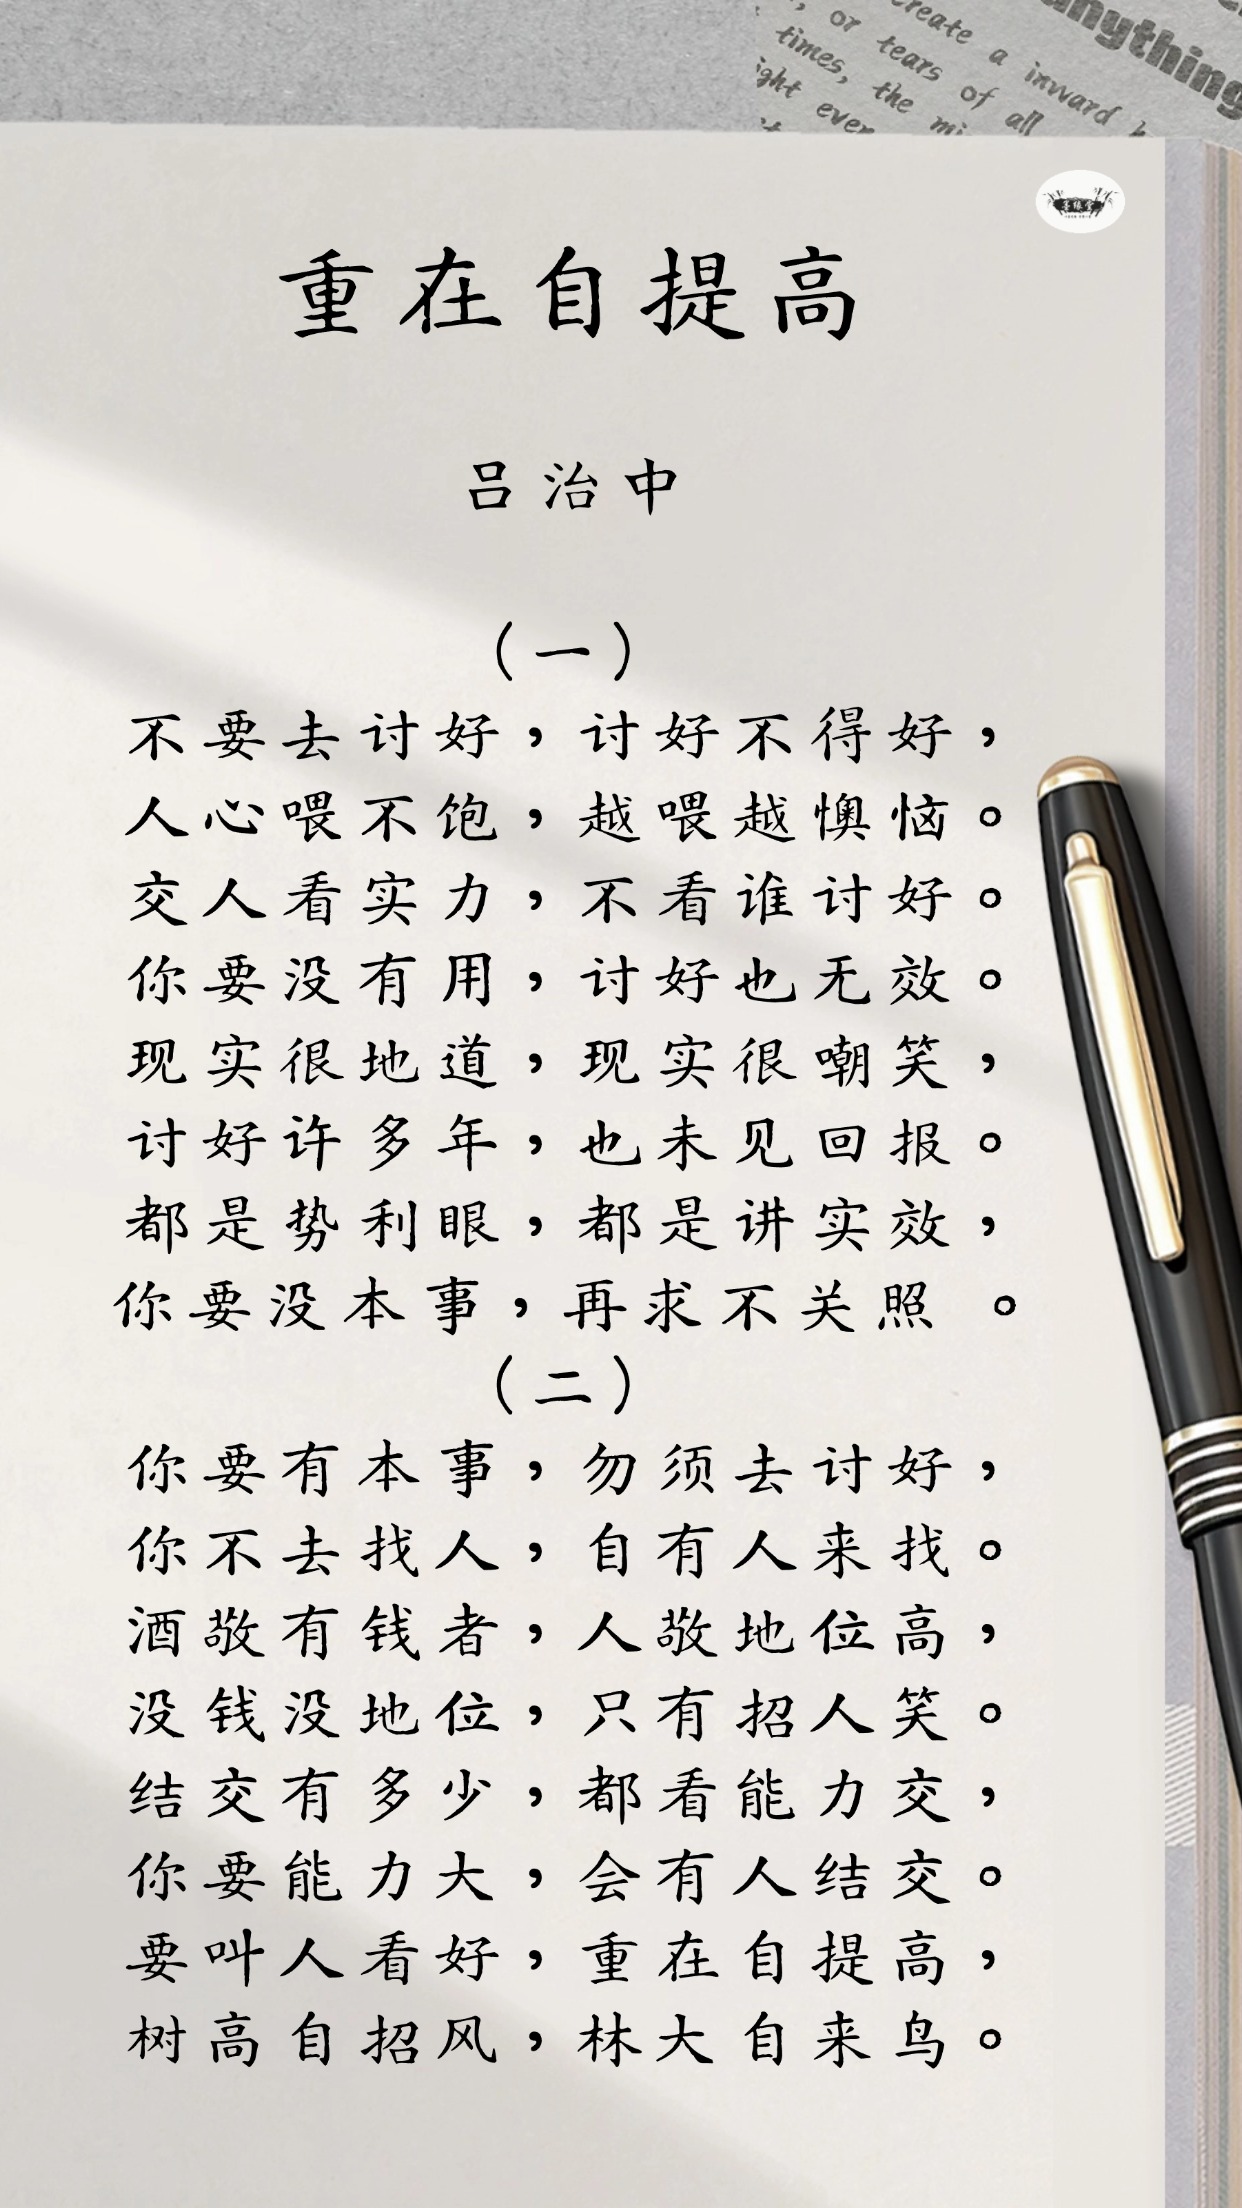 create a inward h
anything
, or tears of all
times, the mi
ight ever
重在自提高
吕治中
（一）
不要去讨好，讨好不得好，
人心喂不饱，越喂越懊恼。
交人看实力，不看谁讨好。
你要没有用，讨好也无效。
现实很地道，现实很嘲笑，
讨好许多年，也未见回报。
都是势利眼，都是讲实效，
你要没本事，再求不关照 。
（二）
你要有本事，勿须去讨好，
你不去找人，自有人来找。
酒敬有钱者，人敬地位高，
没钱没地位，只有招人笑。
结交有多少，都看能力交，
你要能力大，会有人结交。
要叫人看好，重在自提高，
树高自招风，林大自来鸟。